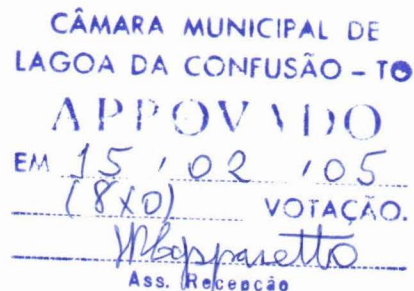 CÂMARA MUNICIPAL DE
LAGOA DA CONFUSÃO - TO
APPOVADO
EM 15 / 02 / 05
(8X0) VOTAÇÃO.
Ass. Recepção